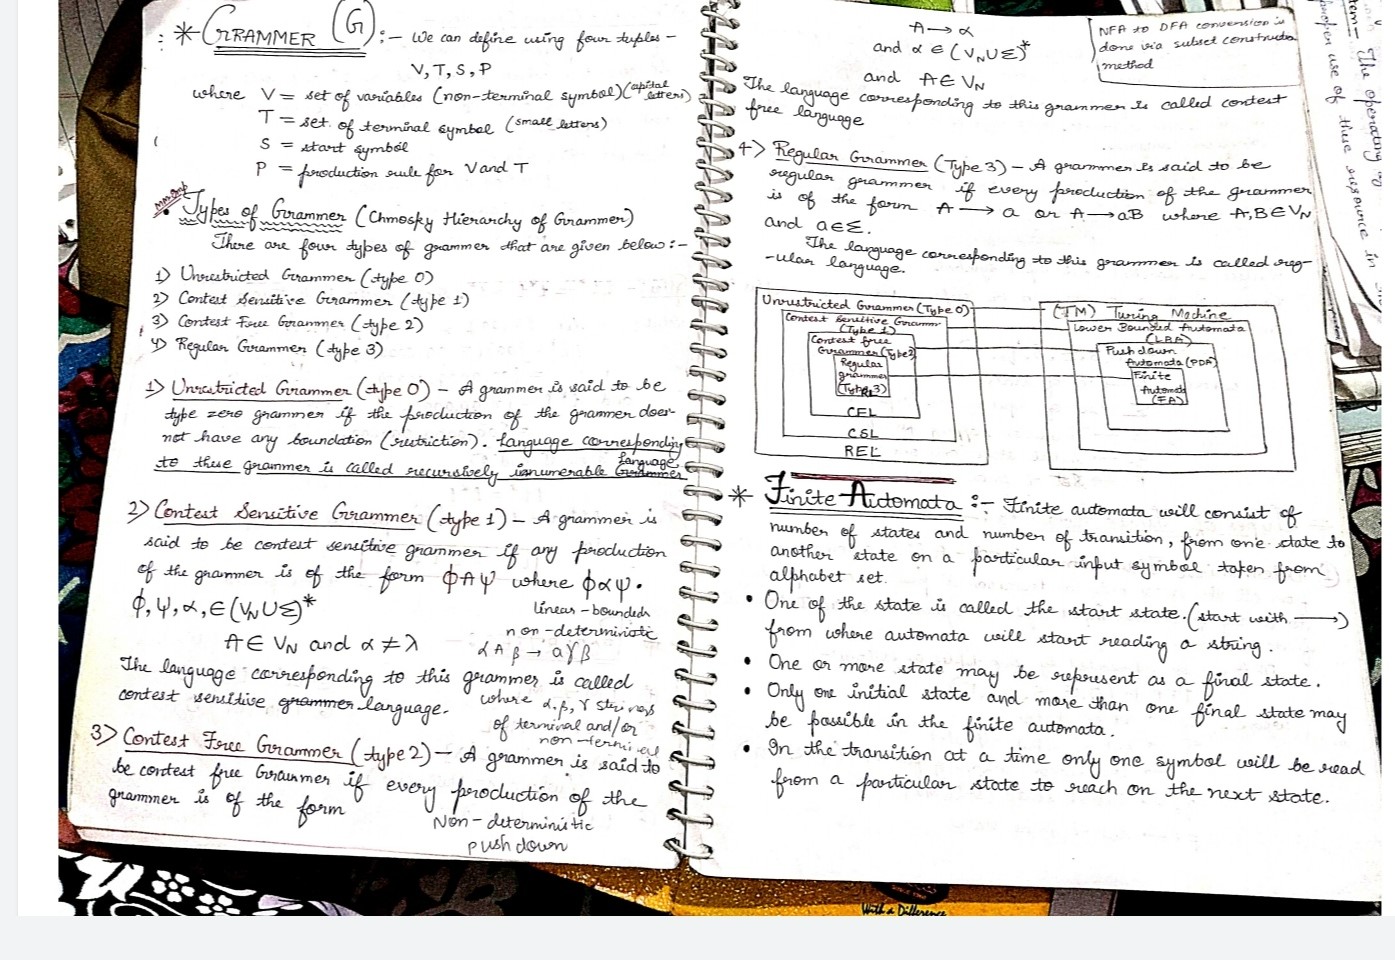 * GRAMMER (G) :- We can define using four tuples -
V, T, S, P
where V = set of variables (non-terminal symbol) (capital letters)
T = set of terminal symbol (small letters)
S = start symbol
P = production rule for V and T
• Types of Grammer (Chmosky Hierarchy of Grammer)
There are four types of grammer that are given below :-
1) Unrestricted Grammer (type 0)
2) Contest Sensitive Grammer (type 1)
3) Contest Free Grammer (type 2)
4) Regular Grammer (type 3)
1) Unrestricted Grammer (type 0) - A grammer is said to be
type zero grammer if the production of the grammer does-
not have any boundation (restriction). Language corresponding
to these grammer is called recursively innumerable Language
2) Contest Sensitive Grammer (type 1) - A grammer is
said to be contest sensitive grammer if any production
of the grammer is of the form ΦAΨ where ΦαΨ.
Φ, Ψ, α, ∈ (VN U Σ)*
A ∈ VN and α ≠ λ
linear-bounded
non-deterministic
αAβ → aγβ
where α, β, γ strings
of terminal and/or
non-terminal
The language corresponding to this grammer is called
contest sensitive grammer language.
3) Contest Free Grammer (type 2) - A grammer is said to
be contest free Grammer if every production of the
grammer is of the form
Non-deterministic
push down
A → α
and α ∈ (VN U Σ)*
and A ∈ VN
NFA to DFA conversion is
done via subset constructo
method
The language corresponding to this grammer is called contest
free language
4) Regular Grammer (Type 3) - A grammer is said to be
regular grammer if every production of the grammer
is of the form A → a or A → aB where A, B ∈ VN
and a ∈ Σ.
The language corresponding to this grammer is called reg-
-ular language.
Unrestricted Grammer (Type 0)
Contest Sensitive Gramm
(Type 1)
Contest free
Grammer (Type 2)
Regular
grammer
(Type 3)
RL
CFL
CSL
REL
(TM) Turing Machine
Lower Bounded Automata
(LBA)
Push down
Automata (PDA)
Finite
Automata
(FA)
* Finite Automata :- Finite automata will consist of
number of states and number of transition, from one state to
another state on a particular input symbol taken from
alphabet set.
• One of the state is called the start state. (start with →)
from where automata will start reading a string.
• One or more state may be represent as a final state.
• Only one initial state and more than one final state may
be possible in the finite automata.
• In the transition at a time only one symbol will be read
from a particular state to reach on the next state.
tem - The operating
proper use of these resource in
With a Difference